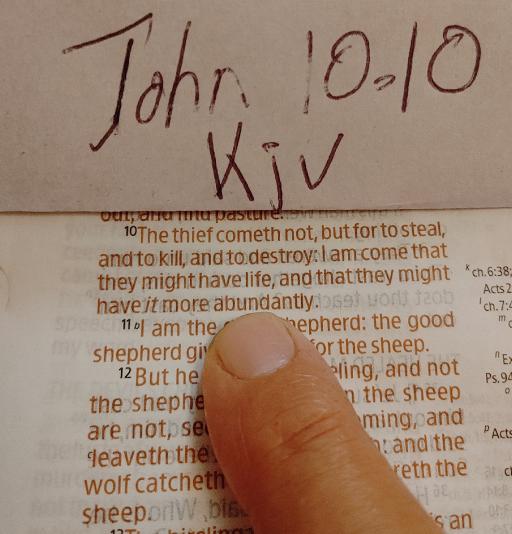 John 10:10
KJV
out, and find pasture.
10 The thief cometh not, but for to steal,
and to kill, and to destroy: I am come that
they might have life, and that they might
have it more abundantly.
11 b I am the hepherd: the good
shepherd gi for the sheep.
12 But he eling, and not
the shephe the sheep
are not, se ming, and
c leaveth the and the
wolf catcheth reth the
sheep.
s an
k ch. 6:38;
Acts 2
l ch. 7:4
m
n Ex
Ps. 94
o
p Acts